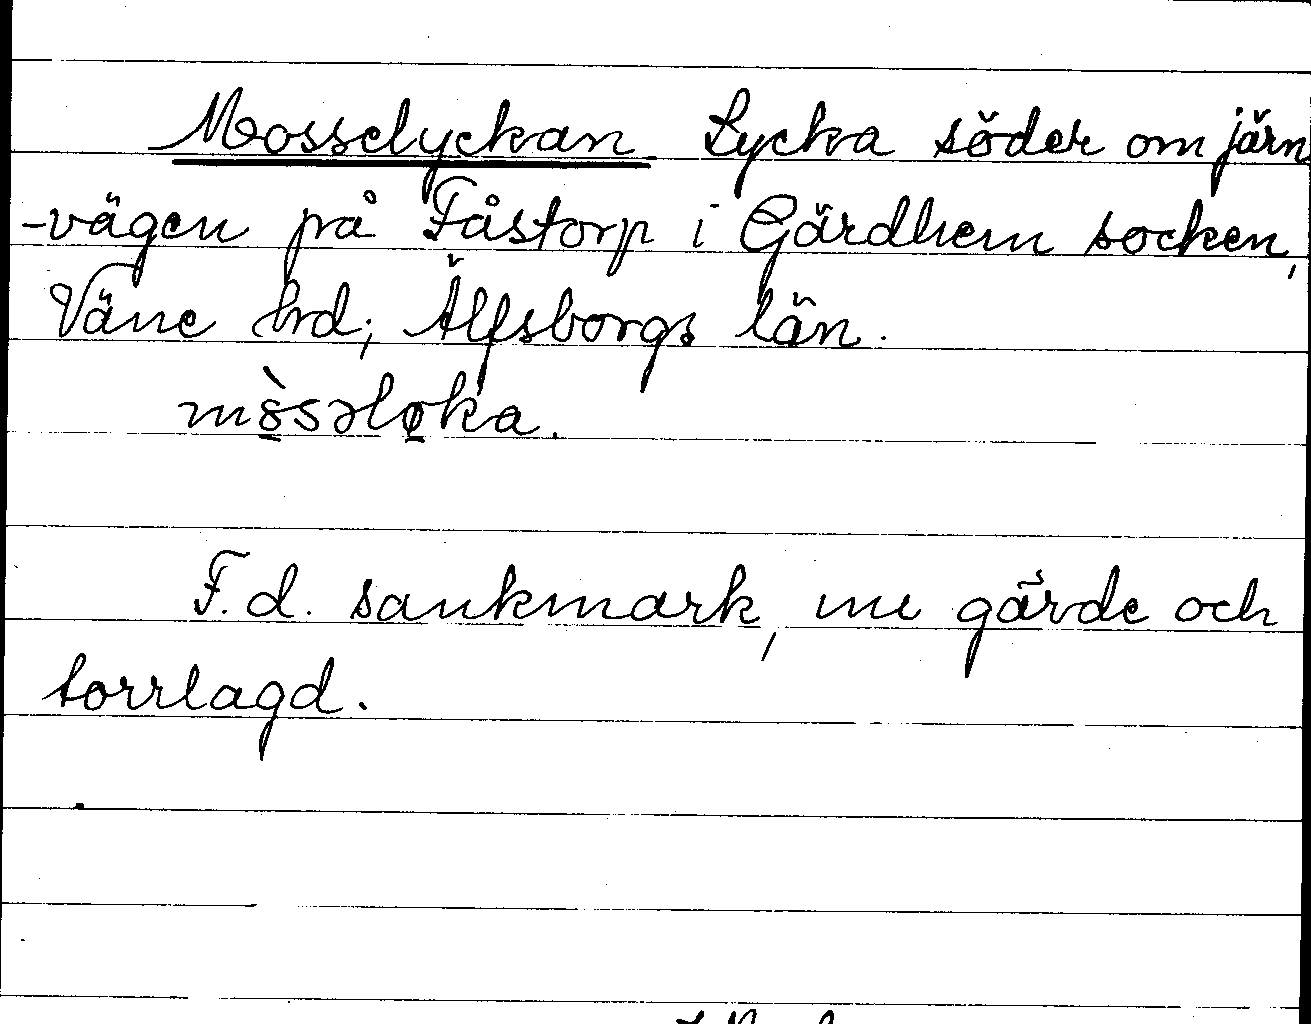 Mosselyckan Lycka söder om järn
-vägen på Fåstorp i Gärdhem socken,
Väne hrd; Älfsborgs län.
F.d. sankmark, nu gärde och
torrlagd.